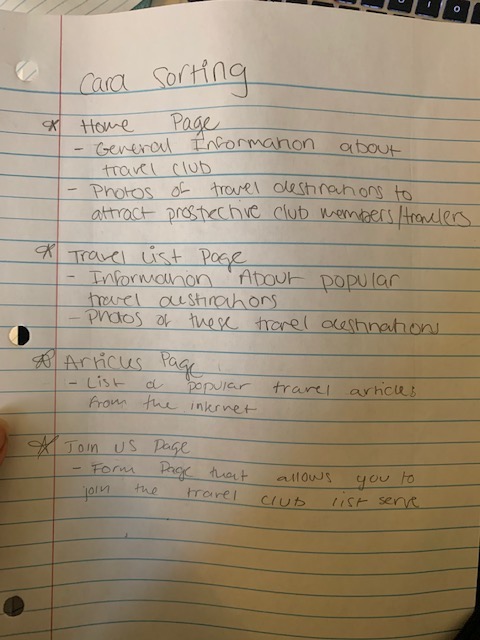 Card Sorting
* Home Page
- General Information about
travel club
- Photos of travel destinations to
attract prospective club members/travelers
* Travel List Page
- Information About popular
travel destinations
- Photos of these travel destinations
* Articles Page
- List of popular travel articles
from the internet
* Join us Page
- Form Page that allows you to
join the travel club list serve